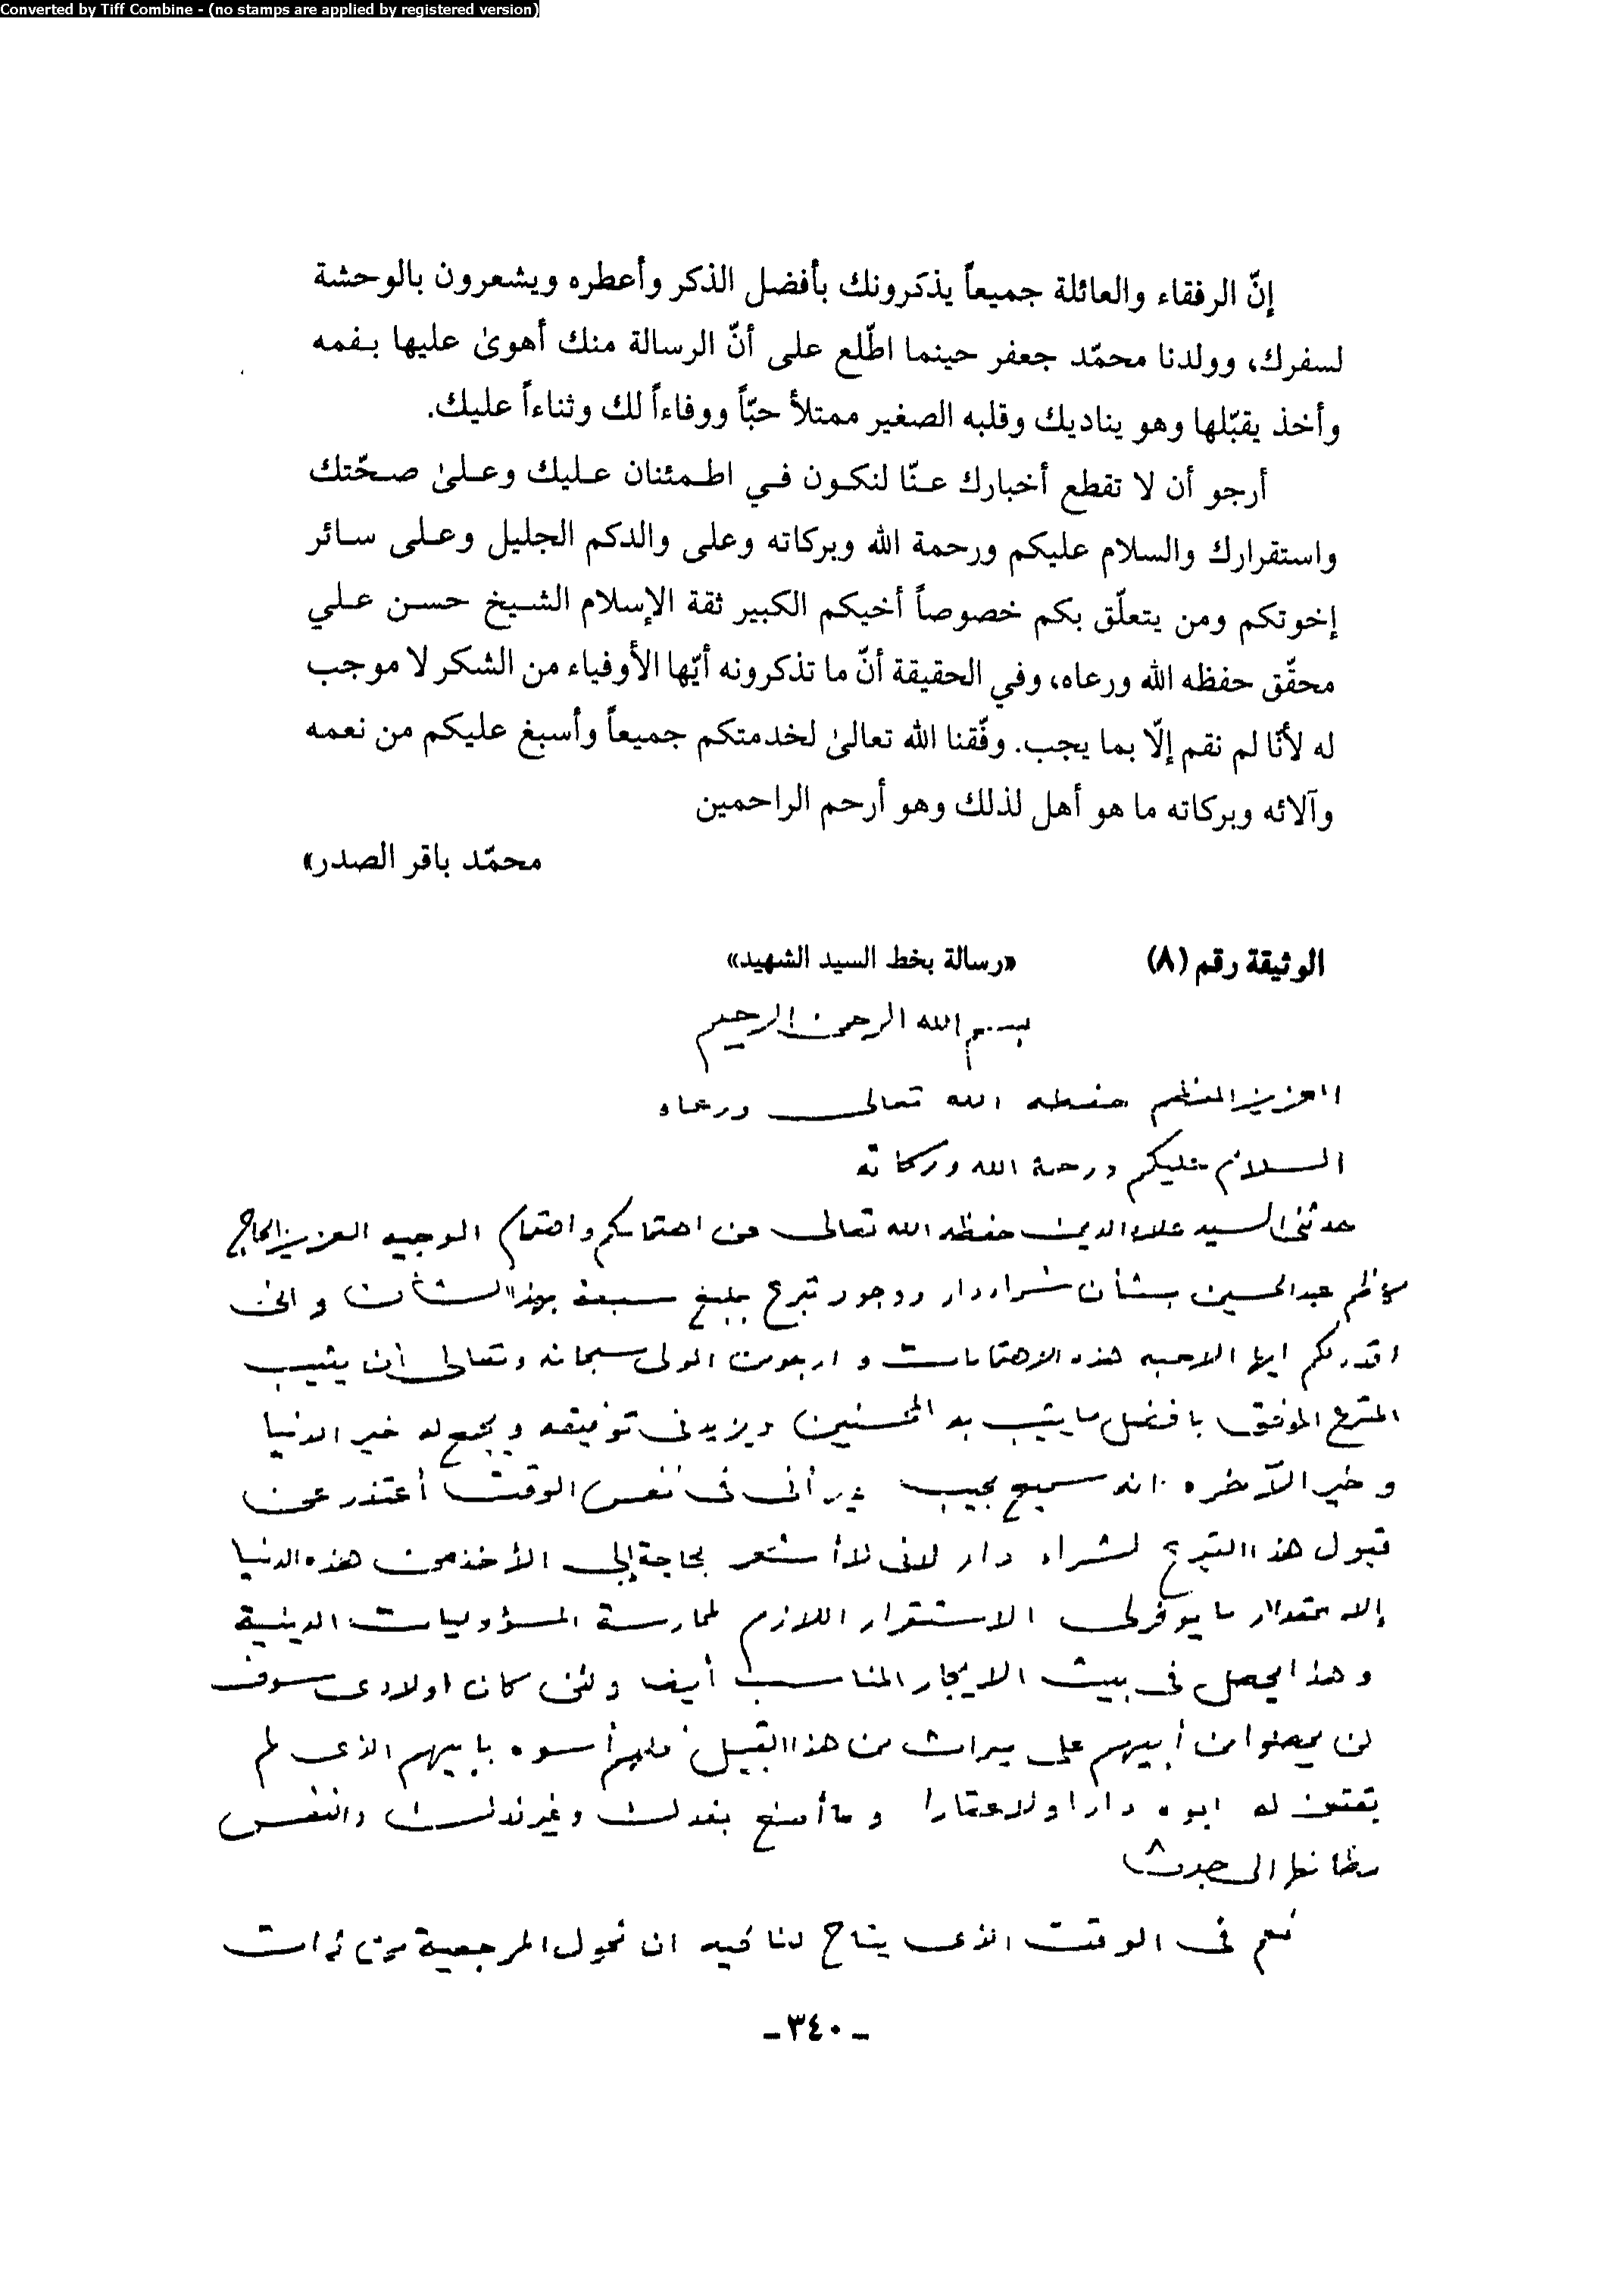 Converted by Tiff Combine - (no stamps are applied by registered version)
إنّ الرفقاء والعائلة جميعاً يذكرونك بأفضل الذكر وأعطره ويشعرون بالوحشة
لسفرك، وولدنا محمّد جعفر حينما اطّلع على أنّ الرسالة منك أهوىٰ عليها بـفمه
وأخذ يقبّلها وهو يناديك وقلبه الصغير ممتلأ حبّاً ووفاءاً لك وثناءاً عليك.
أرجو أن لا تقطع أخبارك عـنّا لنكـون فـي اطـمئنان عـليك وعـلىٰ صـحّتك
واستقرارك والسلام عليكم ورحمة الله وبركاته وعلى والدكم الجليل وعـلى سـائر
إخوتكم ومن يتعلّق بكم خصوصاً أخيكم الكبير ثقة الإسلام الشـيخ حسـن عـلي
محقّق حفظه الله ورعاه، وفي الحقيقة أنّ ما تذكرونه أيّها الأوفياء من الشكر لا موجب
له لأنّا لم نقم إلّا بما يجب. وفّقنا الله تعالىٰ لخدمتكم جميعاً وأسبغ عليكم من نعمه
وآلائه وبركاته ما هو أهل لذلك وهو أرحم الراحمين
محمّد باقر الصدر»
الوثيقة رقم (٨) «رسالة بخط السيد الشهيد»
بسم الله الرحمن الرحيم
العزيز المعظم حفظه الله تعالى ورعاه
السلام عليكم ورحمة الله وبركاته
حدثني السيد علاء الدين حفظه الله تعالى عن اهتمامكم واهتمام الوجيه العزيز الحاج
كاظم عبد الحسين بشأن شراء دار ووجود تبرع بمبلغ سبعة بهذا الشأن وانى
اقدر لكم ايها الاحبه هذه الاهتمامات وارجو من المولى سبحانه وتعالى أن يثيب
المتبرع الموفق بافضل ما يثيب به المحسنين ويزيد في توفيقه ويجمع له خير الدنيا
وخير الآخره انه سميع مجيب غير أنى فى نفس الوقت أعتذر عن
قبول هذا التبرع لشراء دار لانى لا أشعر بحاجة إلى الأخذ من هذه الدنيا
إلا بمقدار ما يوفر لى الاستقرار اللازم لممارسة المسؤوليات الدينية
وهذا يحصل فى بيت الايجار المناسب أيضا ولئن كان اولادى سوف
لن يحصلوا من أبيهم على ميراث من هذا القبيل فلهم أسوه بابيهم الذى لم
يقتن له ابوه دارا ولا عقارا وما أصنع بفدك وغير فدك والنفس
مظانها الى جدث
نعم فى الوقت الذى يتاح لنا فيه ان نحول المرجعية من ذات
ـ ٣٤٠ ـ